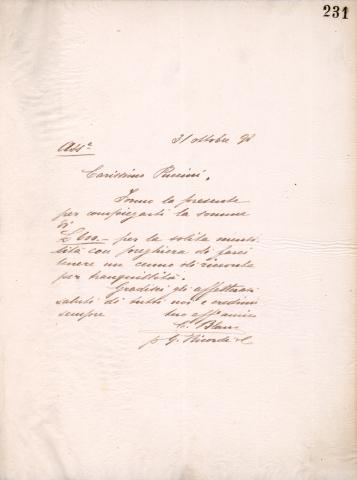 231
31 ottobre 90
Ass.e
Carissimo Puccini,
Invio la presente
per compiegarti la somma
di
£ 200.- per la solita mensi
lità con preghiera di farci
tenere un cenno di ricevuta
per tranquillità.
Gradisci gli affettuosi
saluti di tutti noi e credimi
sempre tuo aff amico
C. Blanc
p G. Ricordi & C.